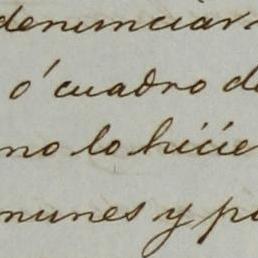 denunciar
ó cuadro de
mo lo hicie
munes y po